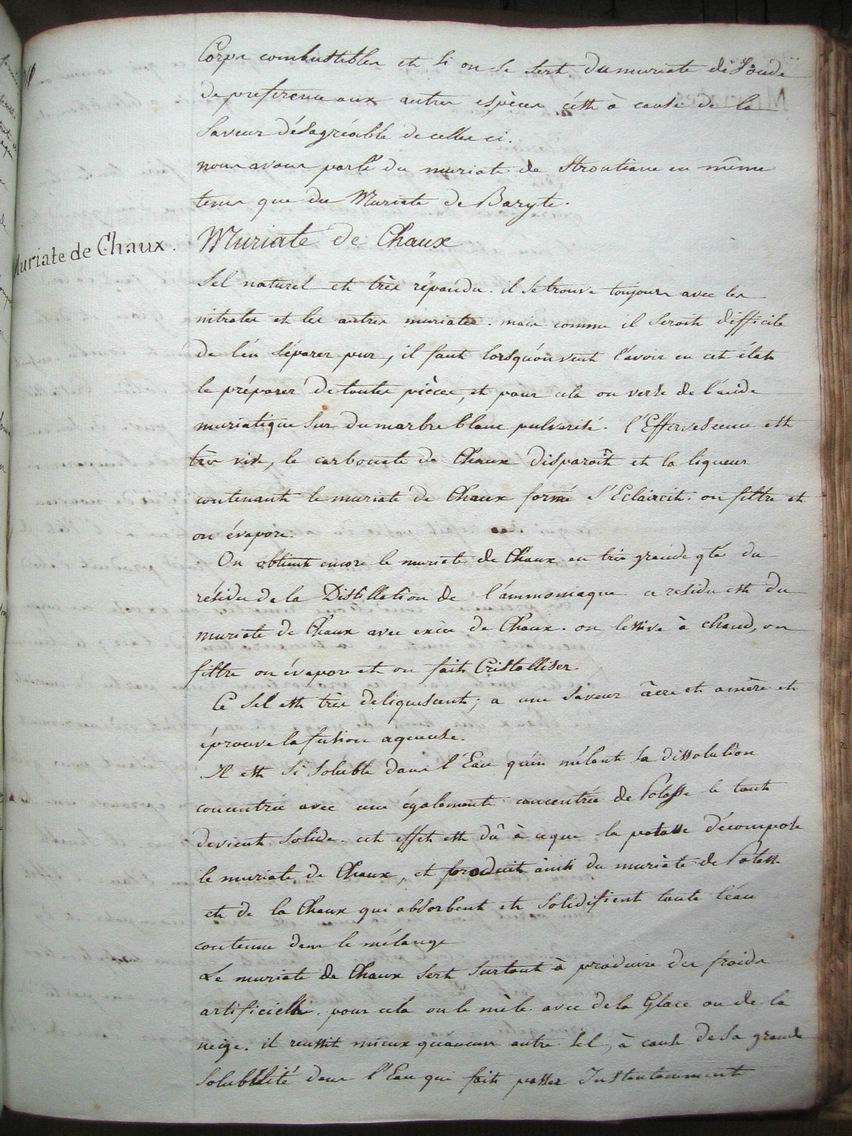 Corps combustibles et si on se sert du muriate de Soude
de preference aux autres espèces c'est à cause de la
Saveur désagréable de celles ci.
nous avons parlé du muriate de Strontiane en même
tems que du Muriate de Baryte.
Muriate de Chaux.
Muriate de Chaux
Sel naturel et très répandu. il se trouve toujours avec les
nitrates et les autres muriates. mais comme il seroit difficile
de l'en séparer pur, il faut lorsqu'on veut l'avoir en cet état
le préparer de toutes pièces et pour cela on verse de l'acide
muriatique sur du marbre blanc pulverisé. l'Effervescence est
très vive, le carbonate de Chaux disparoît et la liqueur
contenant le muriate de Chaux formé s'Eclaircit. on filtre et
on évapore.
On obtient encore le muriate de Chaux en très grande qté du
résidu de la Distillation de l'ammoniaque ce residu est du
muriate de Chaux avec excès de Chaux. on lessive à chaud, on
filtre on évapore et on fait Cristalliser.
Ce Sel est très deliquescent, a une saveur âcre et amère et
éprouve la fusion aqueuse.
Il est si soluble dans l'Eau qu'en mêlant sa dissolution
concentrée avec une également concentrée de Potasse le tout
devient solide. cet effet est dû à ce que la potasse décompose
le muriate de Chaux, et produit ainsi du muriate de Potasse
et de la Chaux qui absorbent et solidifient toute l'eau
contenue dans le mélange
Le muriate de Chaux sert surtout à produire des froids
artificiels. pour cela on le mêle avec de la Glace ou de la
neige. il reussit mieux qu'aucun autre sel, à cause de sa grande
solubilité dans l'Eau qui fait passer Instantanement